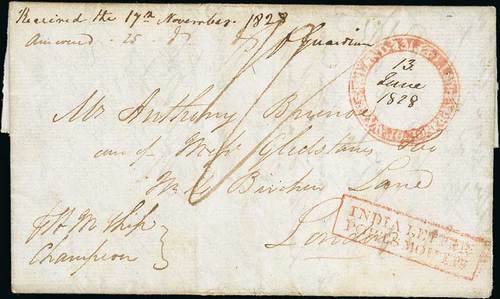 Received the 17th November 1828
Answered 25 do do
p Guardian
13
June
1828
Mr Anthony
care of Messrs Gledstanes
Birchin Lane
London
INDIA LETTER
PORTSMOUTH
p H M Ship
Champion